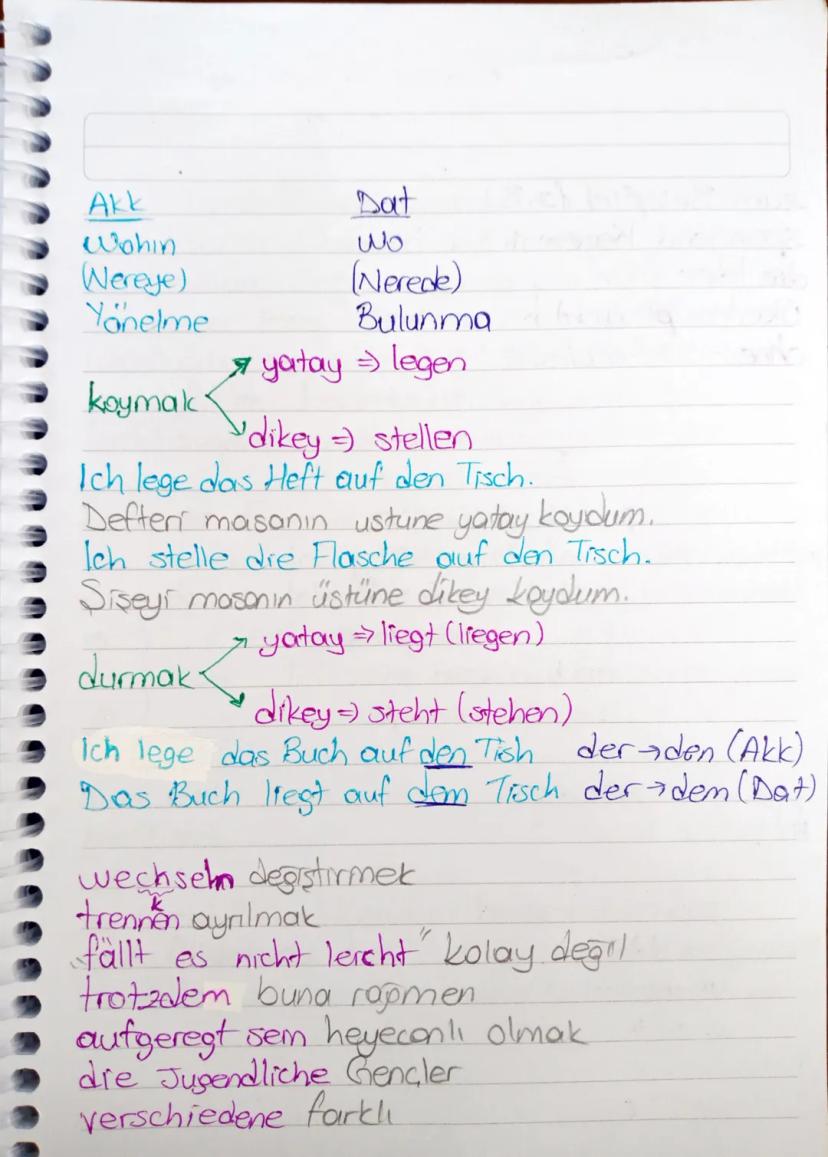 Akk Dat
Wohin Wo
(Nereye) (Nerede)
Yönelme Bulunma
yatay => legen
koymak
dikey => stellen
Ich lege das Heft auf den Tisch.
Defteri masanın ustune yatay koydum.
Ich stelle die Flasche auf den Tisch.
Şişeyi masanın üstüne dikey koydum.
yatay => liegt (liegen)
durmak
dikey => steht (stehen)
Ich lege das Buch auf den Tish der→den (Akk)
Das Buch liegt auf dem Tisch der→dem (Dat)
wechseln değiştirmek
k
trennen ayrılmak
"fällt es nicht leicht" kolay değil
trotzdem buna rağmen
aufgeregt sein heyecanlı olmak
die Jugendliche Gençler
verschiedene farklı